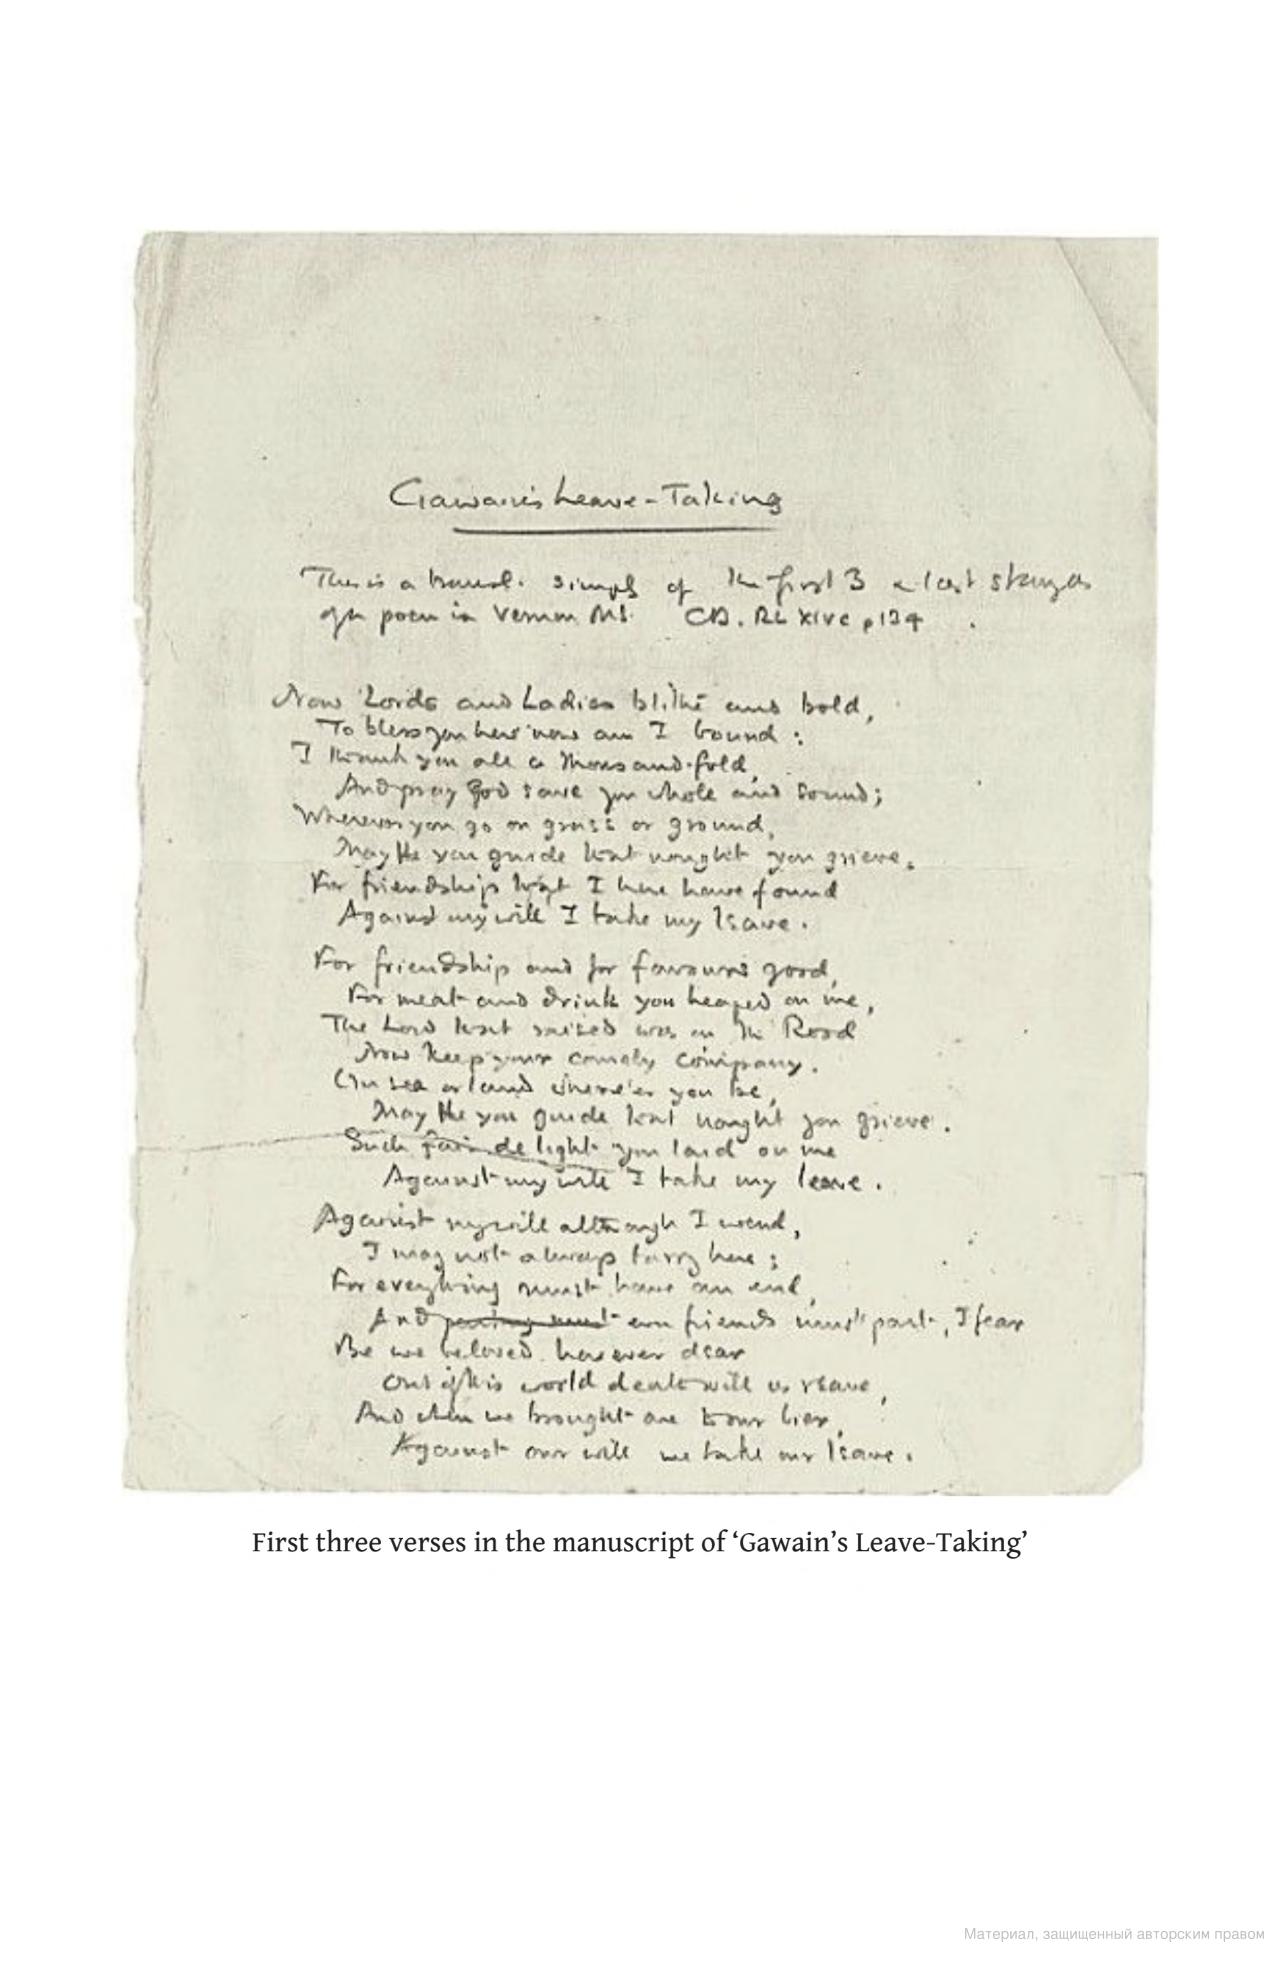 Gawain's Leave-Taking
This is a transl. simply of the first 3 & last stanzas
of the poem in Vernon MS. CB. RL XIVC p134.
Now Lords and Ladies blithe and bold,
To bless you here now am I bound:
I thank you all a thousand-fold,
And pray God save you whole and sound;
Wherever you go on grass or ground,
May He you guide that nought you grieve,
For friendship that I here have found
Against my will I take my leave.
For friendship and for favours good,
For meat and drink you heaped on me,
The Lord that raised was on the Rood
Now keep your comely company.
On sea or land where'er you be,
May He you guide that nought you grieve.
Such fair delight you laid on me
Against my will I take my leave.
Against my will although I wend,
I may not always tarry here;
For everything must have an end,
And parting must even friends must part, I fear
Be we beloved however dear
Out of this world death will us reave,
And when we brought are to our bier,
Against our will we take our leave.
First three verses in the manuscript of ‘Gawain’s Leave-Taking’
Материал, защищенный авторским правом